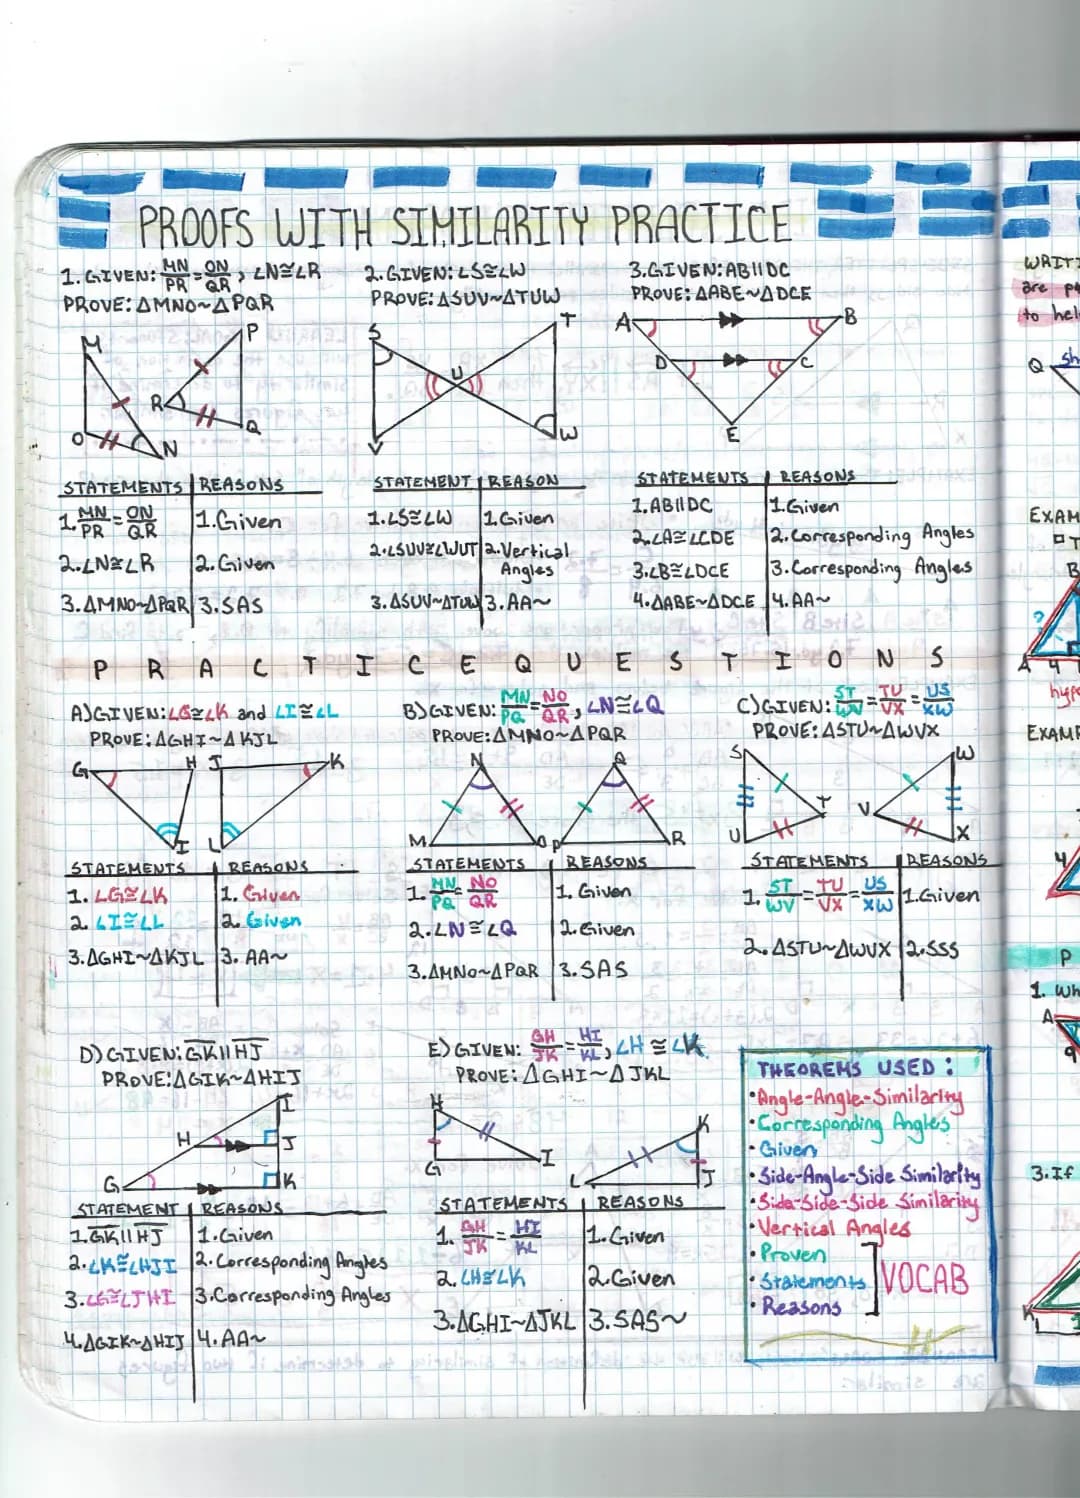 PROOFS WITH SIMILARITY PRACTICE
1. GIVEN: MN/PR = ON/QR, ∠N≅∠R
PROVE: ΔMNO~ΔPQR
M
P
R
O
N
Q
STATEMENTS REASONS
1. MN/PR = ON/QR 1. Given
2. ∠N≅∠R 2. Given
3. ΔMNO~ΔPQR 3. SAS
2. GIVEN: ∠S≅∠W
PROVE: ΔSUV~ΔTUW
S
T
U
V
W
STATEMENT REASON
1. ∠S≅∠W 1. Given
2. ∠SUV≅∠WUT 2. Vertical
Angles
3. ΔSUV~ΔTUW 3. AA~
3. GIVEN: AB||DC
PROVE: ΔABE~ΔDCE
A
B
D
C
E
STATEMENTS REASONS
1. AB||DC 1. Given
2. ∠A≅∠CDE 2. Corresponding Angles
3. ∠B≅∠DCE 3. Corresponding Angles
4. ΔABE~ΔDCE 4. AA~
PRACTICE QUESTIONS
A) GIVEN: ∠G≅∠K and ∠I≅∠L
PROVE: ΔGHI~ΔKJL
G
H
J
K
I
L
STATEMENTS REASONS
1. ∠G≅∠K 1. Given
2. ∠I≅∠L 2. Given
3. ΔGHI~ΔKJL 3. AA~
B) GIVEN: MN/PQ = NO/QR, ∠N≅∠Q
PROVE: ΔMNO~ΔPQR
N
Q
M
O
P
R
STATEMENTS REASONS
1. MN/PQ = NO/QR 1. Given
2. ∠N≅∠Q 2. Given
3. ΔMNO~ΔPQR 3. SAS
C) GIVEN: ST/WV = TU/VX = US/XW
PROVE: ΔSTU~ΔWVX
S
W
T
V
U
X
STATEMENTS REASONS
1. ST/WV = TU/VX = US/XW 1. Given
2. ΔSTU~ΔWVX 2. SSS
D) GIVEN: GK||HJ
PROVE: ΔGIK~ΔHIJ
I
H
J
G
K
STATEMENT REASONS
1. GK||HJ 1. Given
2. ∠K≅∠HJI 2. Corresponding Angles
3. ∠G≅∠JHI 3. Corresponding Angles
4. ΔGIK~ΔHIJ 4. AA~
E) GIVEN: GH/JK = HI/KL, ∠H≅∠K
PROVE: ΔGHI~ΔJKL
H
K
G
I
L
J
STATEMENTS REASONS
1. GH/JK = HI/KL 1. Given
2. ∠H≅∠K 2. Given
3. ΔGHI~ΔJKL 3. SAS~
THEOREMS USED:
• Angle-Angle-Similarity
• Corresponding Angles
• Given
• Side-Angle-Side Similarity
• Side-Side-Side Similarity
• Vertical Angles
• Proven
• Statements VOCAB
• Reasons
WRITI
are
to hel
Q sh
EXAM
B
?
A 4
hyp
EXAMP
4
P
1. Wh
A
9
3. If
K